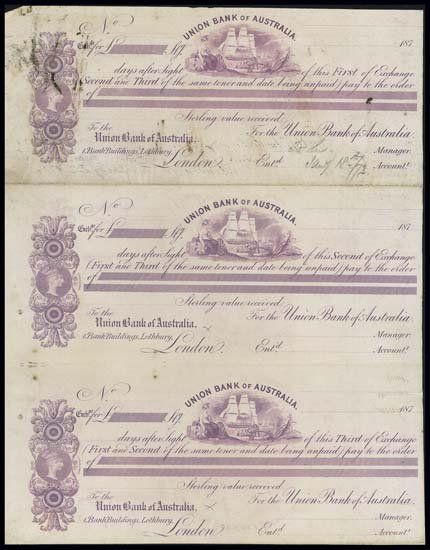 No
UNION BANK OF AUSTRALIA.
Exch. for £ No 187
days after Sight of this First of Exchange
(Second and Third of the same tenor and date being unpaid) pay to the order
of
Sterling value received
To the
Union Bank of Australia,
For the Union Bank of Australia
1, Bank Buildings, Lothbury,
Manager.
London. Entd. Accountt.
No
UNION BANK OF AUSTRALIA.
Exch. for £ No 187
days after Sight of this Second of Exchange
(First and Third of the same tenor and date being unpaid) pay to the order
of
Sterling value received
To the
Union Bank of Australia,
For the Union Bank of Australia
1, Bank Buildings, Lothbury,
Manager.
London. Entd. Accountt.
No
UNION BANK OF AUSTRALIA.
Exch. for £ No 187
days after Sight of this Third of Exchange
(First and Second of the same tenor and date being unpaid) pay to the order
of
Sterling value received
To the
Union Bank of Australia,
For the Union Bank of Australia.
1, Bank Buildings, Lothbury,
Manager.
London Entd. Accountt.